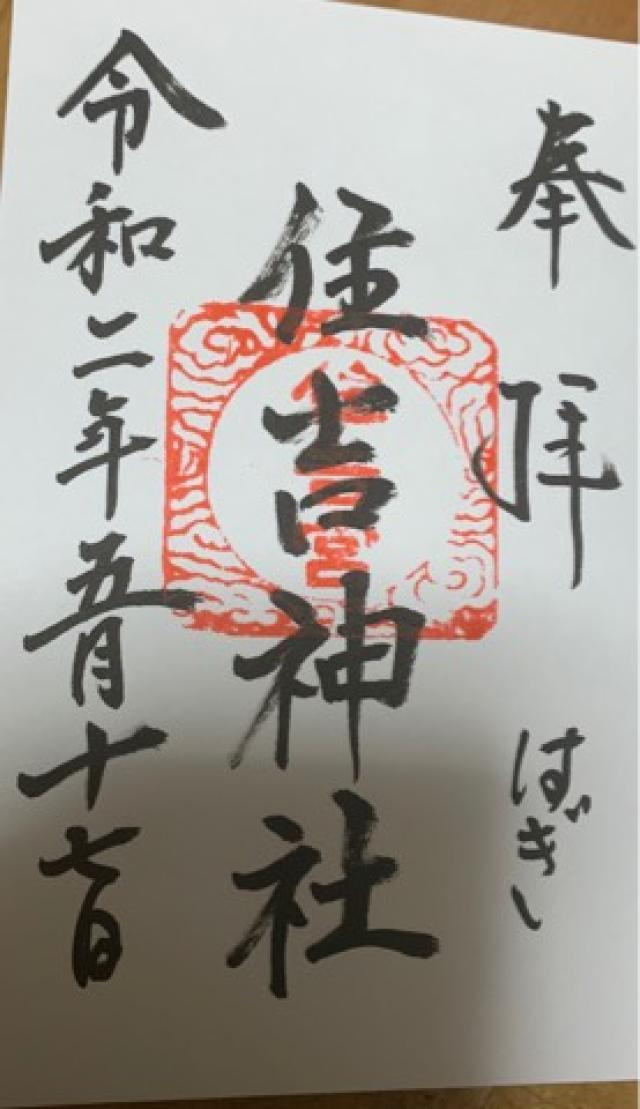 奉拝
ばぎし
住吉神社
令和二年五月十七日